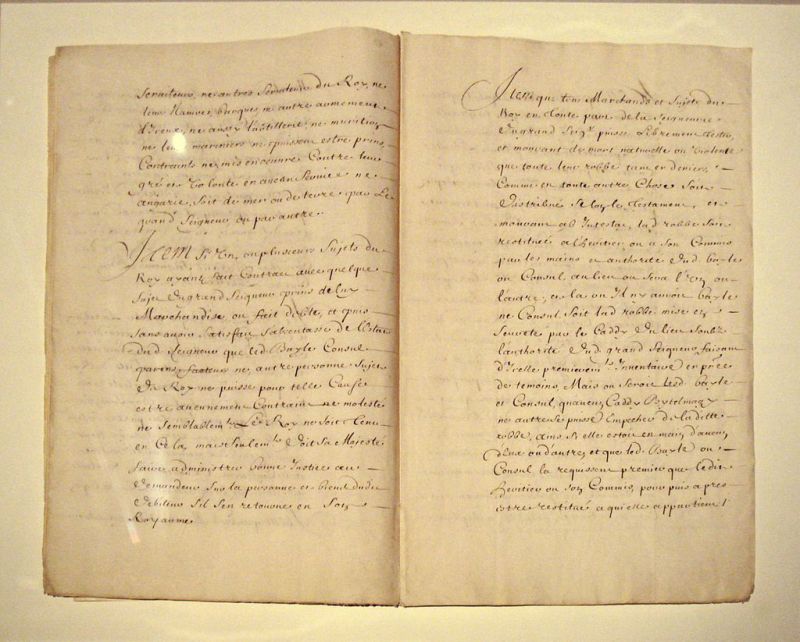 serviteurs, ne autres serviteurs du Roy, ne
leurs Navires, barques, ne autre armement
ne aussi l'artillerie, ne munitions
ne leurs mariniers ne puissent estre prins
Contraints ne mis en oeuvre Contre leur
gré et volonté en aucun service ne
angarie, soit de mer ou de terre par Le
grand Seigneur ou par autre
Item Si Un, ou plusieurs sujets du
Roy ayant fait Contract avec quelque
sujet du grand Seigneur prins de luy
Marchandise ou fait debte, et puis
sans avoir satisfait s'absentasse de l'Estat
dud. Seigneur que led. Bayle Consul
parens, facteurs ne, autre personne sujet
du Roy ne puisse pour telle Cause
estre aucunement Contraint ne molesté
ne semblablemt. Le Roy ne soit tenu
en Cela mais seulemt. doit sa Majesté
faire administrer bonne Justice au
demandeur sur la personne et biens dudit
debiteur s'il s'en retourne en son
Royaume
Item que tous Marchands et Sujets du
Roy en toute part de la seigneurie
du grand Seigr. puisse Librement tester
et mourant de mort naturelle ou violente
que toute leur robbe tant en deniers,
Comme en toute autre Chose soit
distribué selon le testament, et
mourant ab Intestat, lad. robbe soit
restitué a l'heritier ou a son Commis
par les mains et authorité dud. bayle
ou Consul, au lieu ou sera l'un ou
l'autre, et la ou Il n'y auroit bayle
ne Consul soit lad. robbe mise en
seureté par le Caddy du lieu soubz
l'authorité dud. grand Seigneur faisant
d'Icelle premieremt. Inventaire en pnce
de temoins, Mais ou seroit lesd. bayle
et Consul, qu'aucun Caddy
ne autre se puisse Empecher de la dite
robbe, ains si elle estoit en main d'aucun
d'eux ou d'autres et que led. Bayle ou
Consul la requissent premier que ledit
heritier ou son Commis, pour puis apres
estre restitué a qui elle appartient